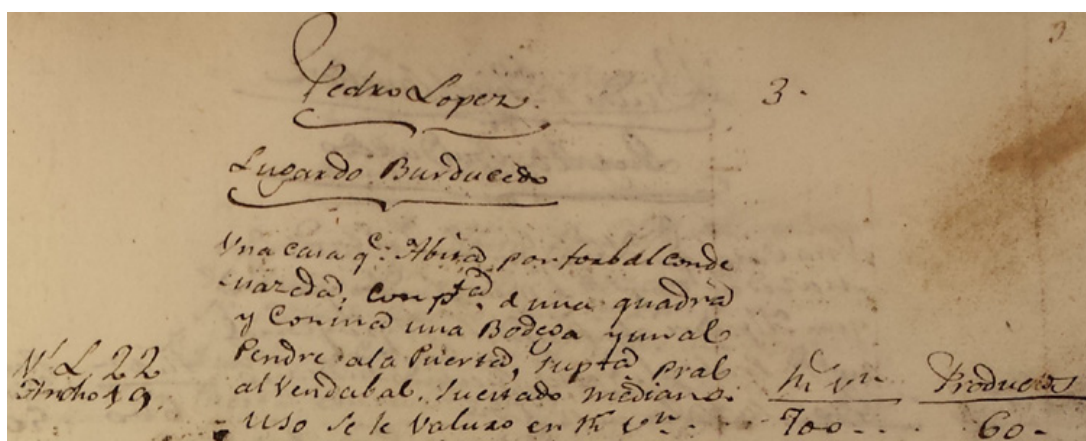 3
Pedro Lopez.
3.
Lugar do Burducedo
Una casa q.e Abita por foral conde
compta. de una quadra
y Cocina una Bodega y un al
Pendre a la Puerta, su pta. pral
al Vendabal, su estado mediano.
Uso se le Valuro en Rs. vn.
L 22
Ancho 19
Rs. vn Productos
700 - - 60 -